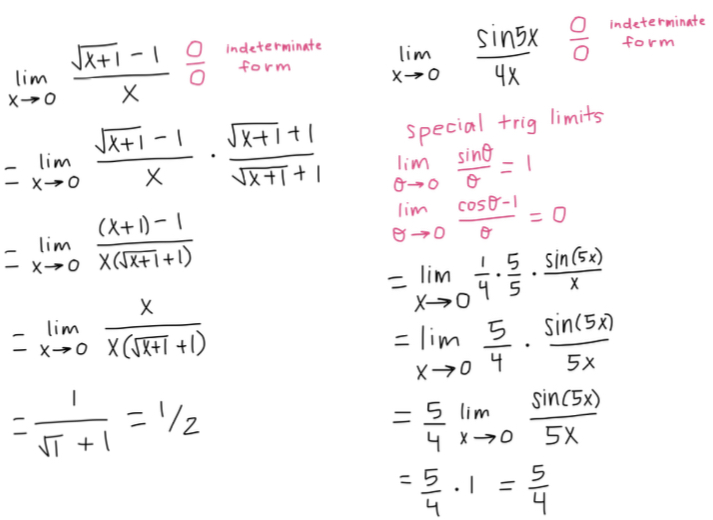 lim x→0 (√(x+1) - 1)/x 0/0 indeterminate form
= lim x→0 (√(x+1) - 1)/x · (√(x+1) + 1)/(√(x+1) + 1)
= lim x→0 ((x+1) - 1)/(x(√(x+1) + 1))
= lim x→0 x/(x(√(x+1) + 1))
= 1/(√1 + 1) = 1/2
lim x→0 sin5x/4x 0/0 indeterminate form
special trig limits
lim θ→0 sinθ/θ = 1
lim θ→0 (cosθ-1)/θ = 0
= lim x→0 1/4 · 5/5 · sin(5x)/x
= lim x→0 5/4 · sin(5x)/5x
= 5/4 lim x→0 sin(5x)/5x
= 5/4 · 1 = 5/4